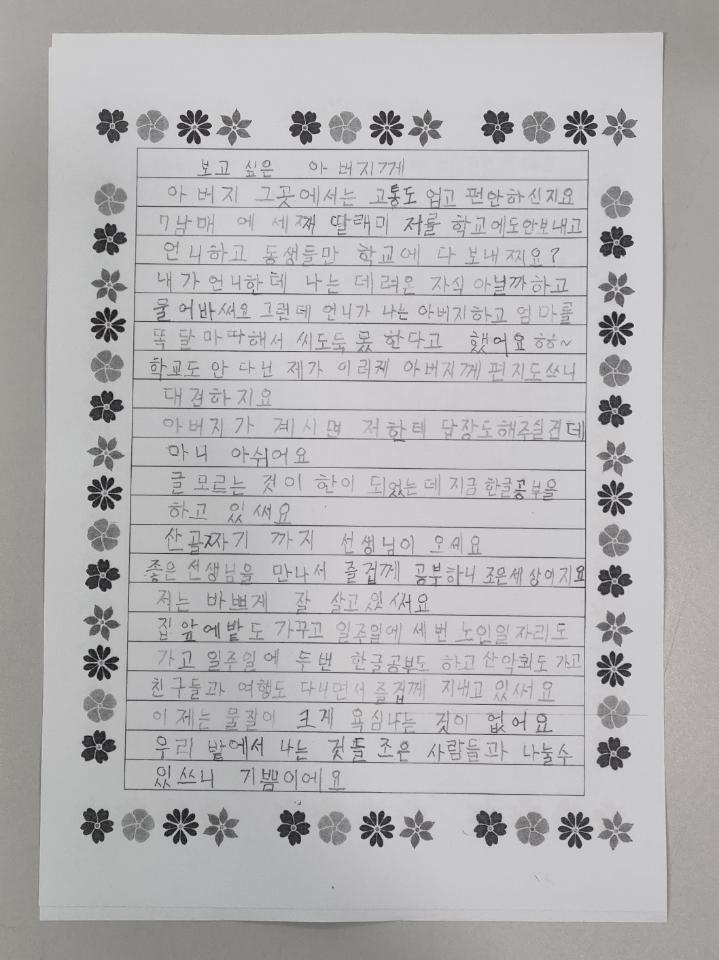 보고 싶은 아버지께
아버지 그곳에서는 고통도 업고 편안하신지요
7남매 에 세째 딸래미 저를 학교에도안보내고
언니하고 동생들만 학교에 다 보내찌요?
내가 언니한테 나는 데려온 자식 아닐까하고
물어바써요 그런데 언니가 나는 아버지하고 엄마를
똑 달마따해서 씨도둑 못 한다고 했어요 하하~
학교도 안 다닌 제가 이러케 아버지께 편지도쓰니
대견하지요
아버지가 계시면 저한테 답장도해주실건데
마니 아쉬어요
글 모르는 것이 한이 되었는데 지금 한글공부을
하고 있써요
산골짜기 까지 선생님이 오세요
좋은 선생님을 만나서 즐겁께 공부하니 조은세상이지요
저는 바쁘게 잘 살고있써요
집 앞에밭도 가꾸고 일주일에 세번 노인일자리도
가고 일주일에 두번 한글공부도 하고 산악회도 가고
친구들과 여행도 다니면서 즐겁께 지내고 있써요
이제는 물질이 크게 욕심나는 것이 없어요
우리 밭에서 나는 것들 조은 사람들과 나눌수
있쓰니 기쁨이에요